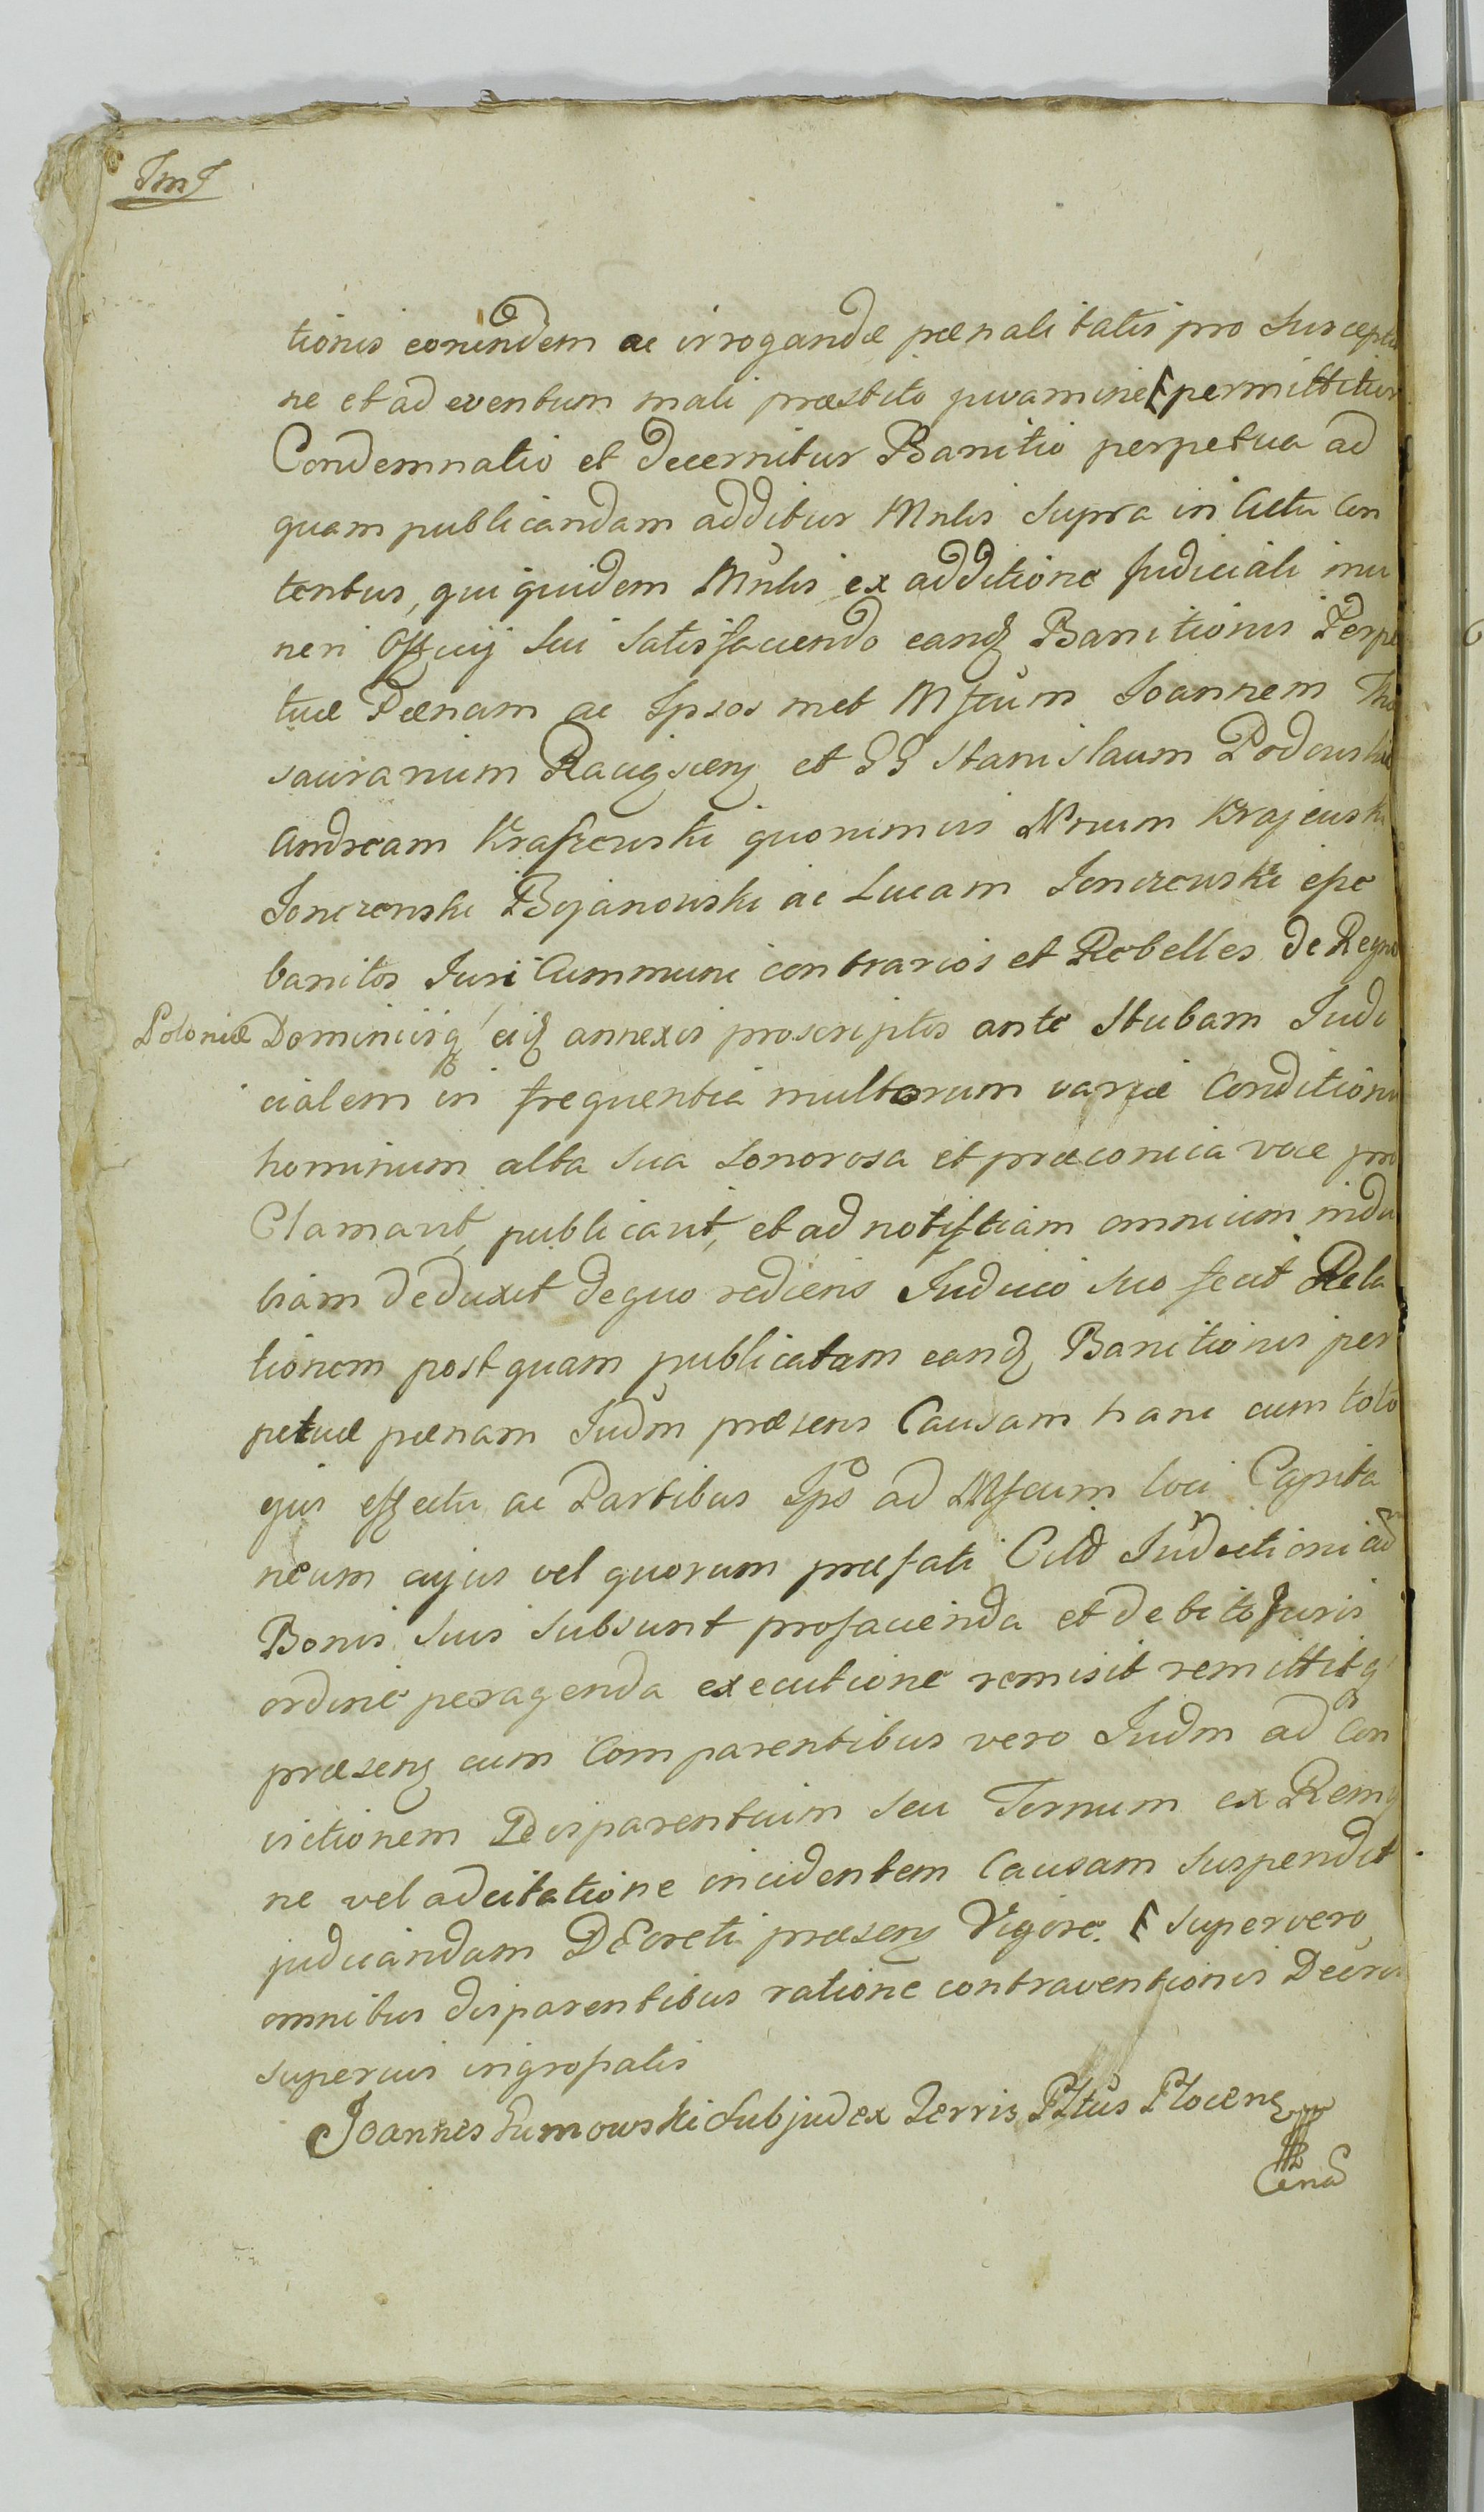 tionis eorundem ac irrogandæ pænalitatis pro Suscept
ne et ad eventum mali præstito juramine permittitur
Condemnatio et decernitur Banitio perpetua ad
quam publicandam additur Mnlis supra in Actu Con
tentus, qui quidem Mnlis ex additione Judiciali mu
neri Offcij sui Satisfaciendo eandz Banitionis Perpe
tuæ Pænam ac Ipsos met Mfcum Joannem The
saurarium Raciąscenz et GG Stanislaum Podowski
Andream Kraszewski quonimus Nrum Krajewski
Jonczewski Bojanowski ac Lucam Jonczewski esse
banitos Juri Cummuni contrarios et Rebelles de Regno
Poloniæ Dominiisq eidz annexis proscriptis ante Stubam Judi
cialem in frequentia multorum variæ Conditionis
hominum alta sua sonorosa et præconica voce pro
Clamavit, publicavit, et ad notitiam omnium indu
biam deduxit de quo rediens Judicio suo fecit Rela
tionem post quam publicatam eandz Banitionis per
petuæ pænam Judm præsens Causam hanc cum toto
ejus effectu ac Partibus Ipso ad Mfcum loci Capita
neum cujus vel quorum præfati Citd Jurdictioni ad
Bonis suis subsunt profacienda et debito Juris
ordine peragenda executione remisit remittitq
præsenz cum Comparentibus vero Judm ad Con
victionem Disparentium seu Ternum ex Remis
ne vel adcitatione incidentem Causam Suspendit
judicandam DEcreti præsenz Vigore. super vero
omnibus disparentibus ratione contraventionis Decris
superius ingrossatis
Joannes Sumowski Subjudex Terris Pltus Plocenz